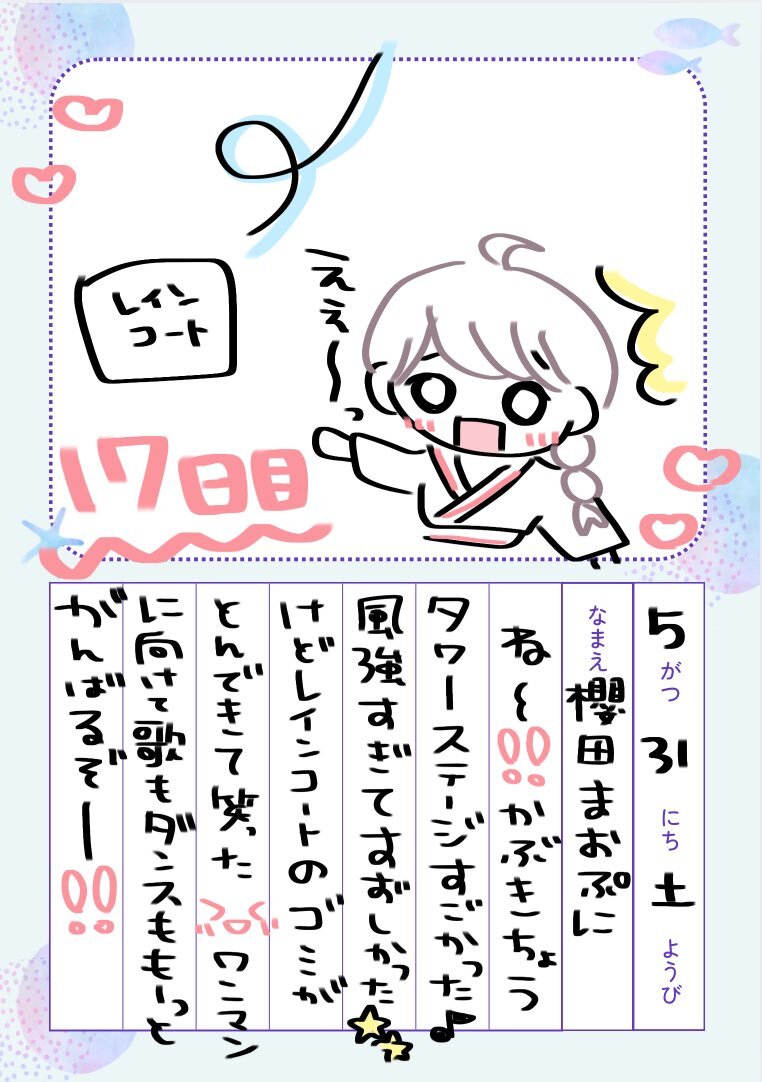 レイン
コート
ええ〜っ
17日目
5がつ31にち土ようび
なまえ 櫻田まおぷに
ね〜!!かぶきちょう
タワーステージすごかった♪
風強すぎてすずしかった
けどレインコートのゴミが
とんできて笑った ワンマン
に向けて歌もダンスももーっと
がんばるぞー!!